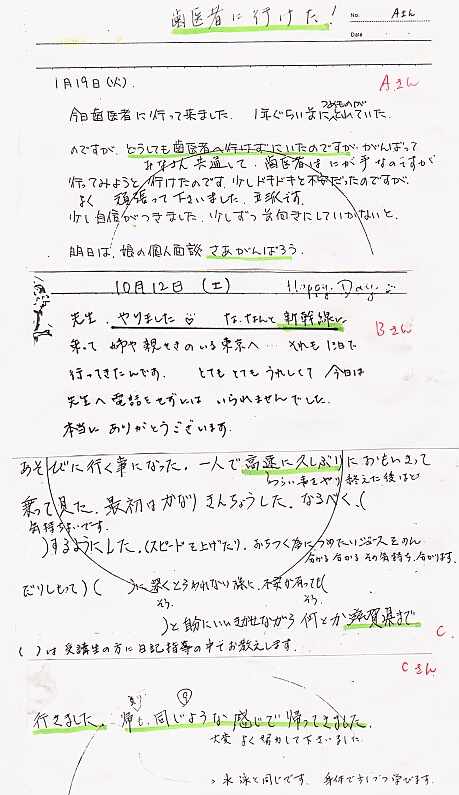 歯医者に行けた!
No. Aさん
Date
1月19日(火).
Aさん
今日歯医者に行って来ました. 1年ぐらい前に つめものが とれていた.
のですが、どうしても歯医者へ行けずにいたのですが、がんばって
みなさん共通して、歯医者はにが手なのですが
行ってみようと行けたのです. 少しドキドキと不安だったのですが.
よく頑張って下さいました. 立派です.
少し自信がつきました. 少しずつ前向きにしていかないと.
明日は、娘の個人面談 さあがんばろう.
10月12日 (土) Happy. Day.
先生、やりました な、なんと新幹線に
Bさん
乗って 姉や親せきのいる東京へ… それも1日で
行ってきたんです. とてもとてもうれしくて 今日は
先生へ電話をせずには いられませんでした.
本当に ありがとうございます.
あそびに行く事になった. 一人で高速に久しぶりにおもいきって
つらい事をやり終えた後ほど
乗って見た. 最初はかなりきんちょうした. なるべく、(
気持ちよいです.
)するようにした. (スピードを上げたり、おちつく為につめたいジュースをのん
分かる分かるその気持ち、分かります.
だりしもって) ( )に驚くとらわれない様に 不安が有っても(
そう. そう.
)と自分にいいきかせながら 何とか滋賀県まで
C.
( )は受講生の方に日記指導の中でお教えします.
Cさん
行きました. 帰も、同じような感じで帰ってきました.
大変よく協力して下さいました.
水泳と同じです. 身体で少しづつ学びます.